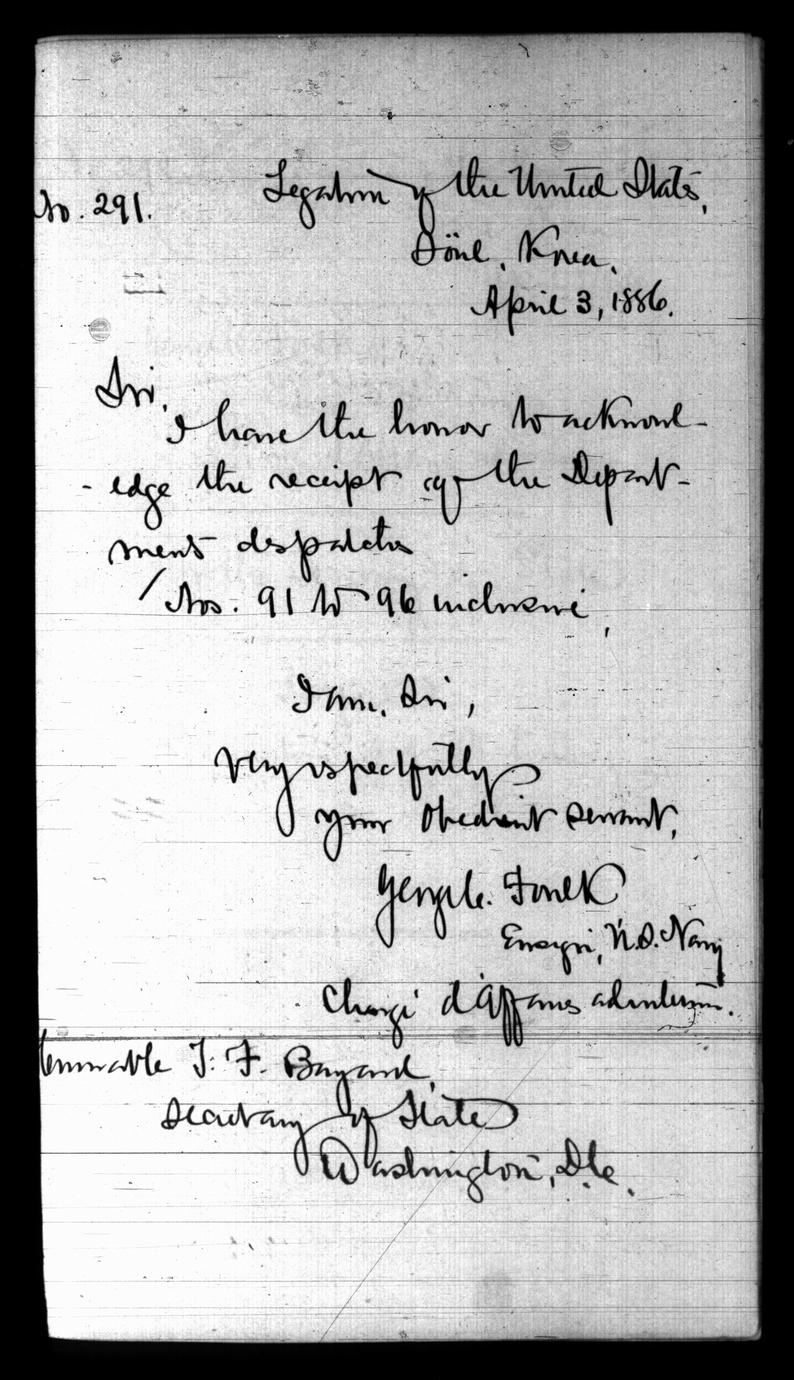 No. 291.
Legation of the United States,
Söul, Korea,
April 3, 1886.
Sir,
I have the honor to acknowl-
- edge the receipt of the Depart-
ments despatches
Nos. 91 to 96 inclusive,
I am, Sir,
Very respectfully
your obedient servant,
George C. Foulk
Ensign, U.S. Navy
Chargé d'Affaires ad interim.
Honorable T. F. Bayard,
Secretary of State
Washington, D.C.